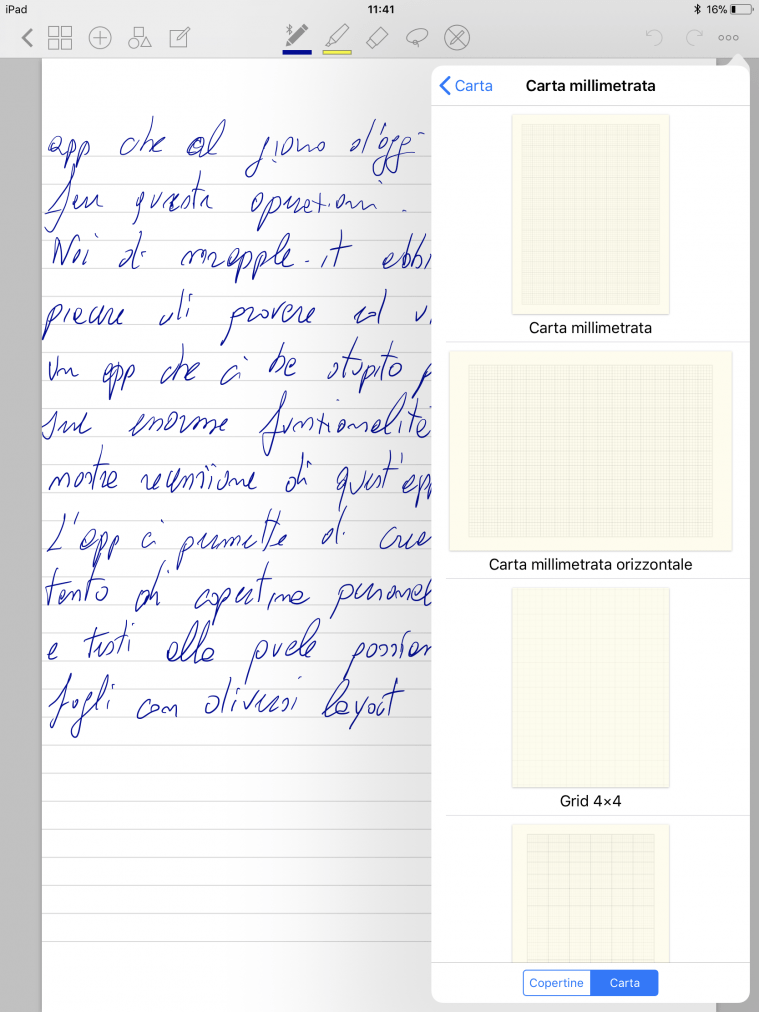 iPad
11:41
16%
Carta
Carta millimetrata
app che al giorno d'oggi
questa operazioni.
Noi di mrapple.it abbi
piacere di provare ed
un app che ci ha stupito p
sue enorme funzionalità
nostra recensione di quest'app
L'app ci permette di crea
tanto di copertina personal
e testi alla quale possiam
fogli con diversi layout
Carta millimetrata
Carta millimetrata orizzontale
Grid 4×4
Copertine
Carta